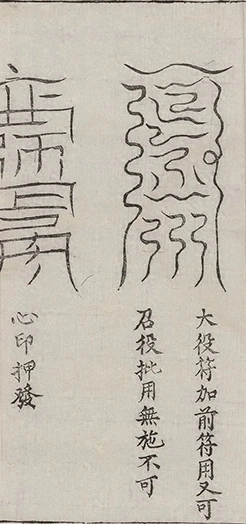 大役符加前符用又可
召役批用無施不可
心印押發